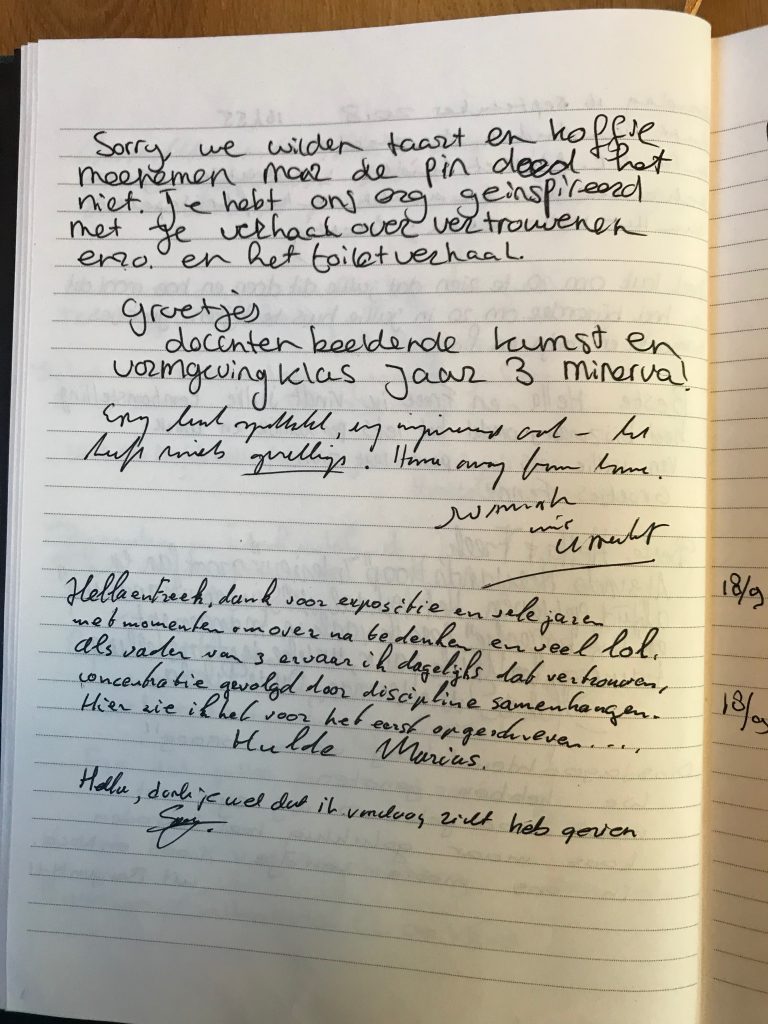 Sorry, we wilden taart en koffie
meenemen maar de pin deed het
niet. Je hebt ons erg geïnspireerd
met je verhaal over vertrouwenen
enzo. en het toiletverhaal.
Groetjes
docenten beeldende kunst en
vormgeving klas jaar 3 minerva!
Erg leuk, erg inspirerend ook – het
heeft iets. Home away from home.
uit
Utrecht
Hella en Freek, dank voor expositie en vele jaren
met momenten om over na te denken en veel lol.
Als vader van 3 ervaar ik dagelijks dat vertrouwen,
concentratie gevolgd door discipline samenhangen.
Hier zie ik het voor het eerst opgeschreven....
Hulde Marius.
Hella, dank je wel dat ik vandaag heb
18/9
18/09